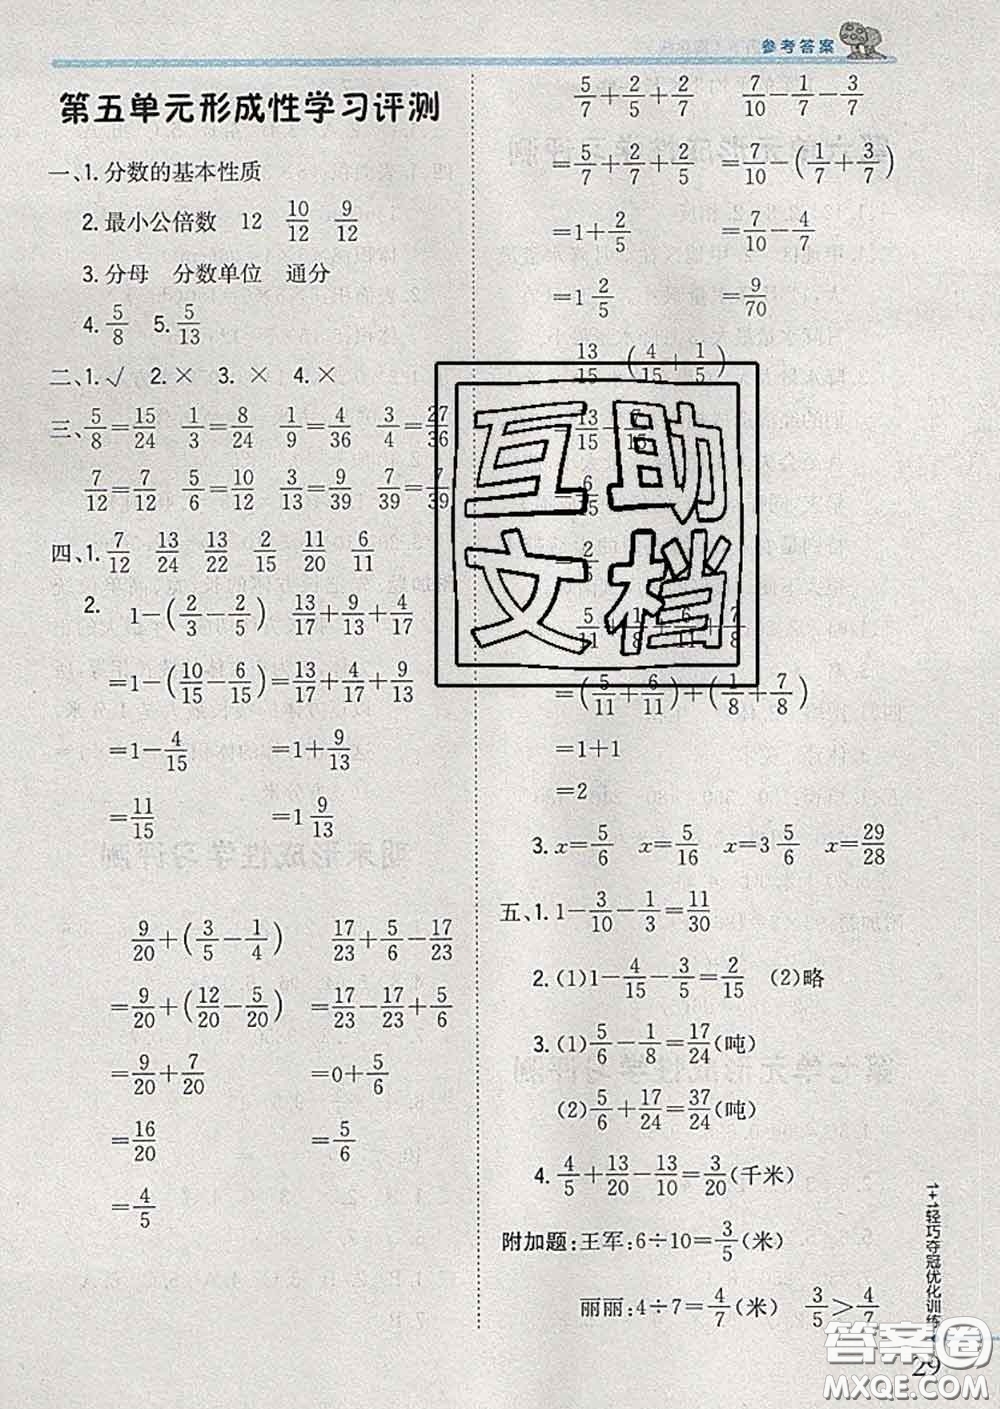 参考答案
第五单元形成性学习评测
一、1. 分数的基本性质
2. 最小公倍数 12 10/12 9/12
3. 分母 分数单位 通分
4. 5/8 5. 5/13
二、1. √ 2. × 3. × 4. ×
三、5/8=15/24 1/3=8/24 1/9=4/36 3/4=27/36
7/12=7/12 5/6=10/12 3/13=9/39 7/39=7/39
四、1. 7/12 13/24 13/22 2/15 11/20 6/11
2. 1-(2/3-2/5) 13/17+9/13+4/17
=1-(10/15-6/15) =13/17+4/17+9/13
=1-4/15 =1+9/13
=11/15 =1 9/13
9/20+(3/5-1/4) 17/23+5/6-17/23
=9/20+(12/20-5/20) =17/23-17/23+5/6
=9/20+7/20 =0+5/6
=16/20 =5/6
=4/5
5/7+2/5+2/7 7/10-1/7-3/7
=5/7+2/7+2/5 =7/10-(1/7+3/7)
=1+2/5 =7/10-4/7
=1 2/5 =9/70
13/15 (4/15+1/5)
13/15 7/15
6/15
2/5
5/11+1/8+6/11+7/8
=(5/11+6/11)+(1/8+7/8)
=1+1
=2
3. x=5/6 x=5/16 x=3 5/6 x=29/28
五、1. 1-3/10-1/3=11/30
2. (1)1-4/15-3/5=2/15 (2)略
3. (1)5/6-1/8=17/24(吨)
(2)5/6+17/24=37/24(吨)
4. 4/5+13/20-13/10=3/20(千米)
附加题:王军:6÷10=3/5(米)
丽丽:4÷7=4/7(米) 3/5>4/7
1+1轻巧夺冠优化训练
29
互助
文档
答案圈
MXQE.COM